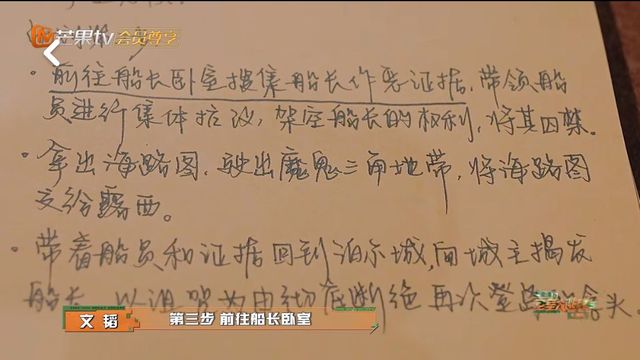 芒果tv 会员尊享
·前往船长卧室搜集船长作恶证据,带领船
员进行集体抗议,架空船长的权利,将其囚禁。
·拿出海路图,驶出魔鬼三角地带,将海路图
交给露西。
·带着船员和证据回到泊尔城,向城主揭发
船长,以诅咒为由彻底断绝再次登 念头。
文韬 第三步 前往船长卧室